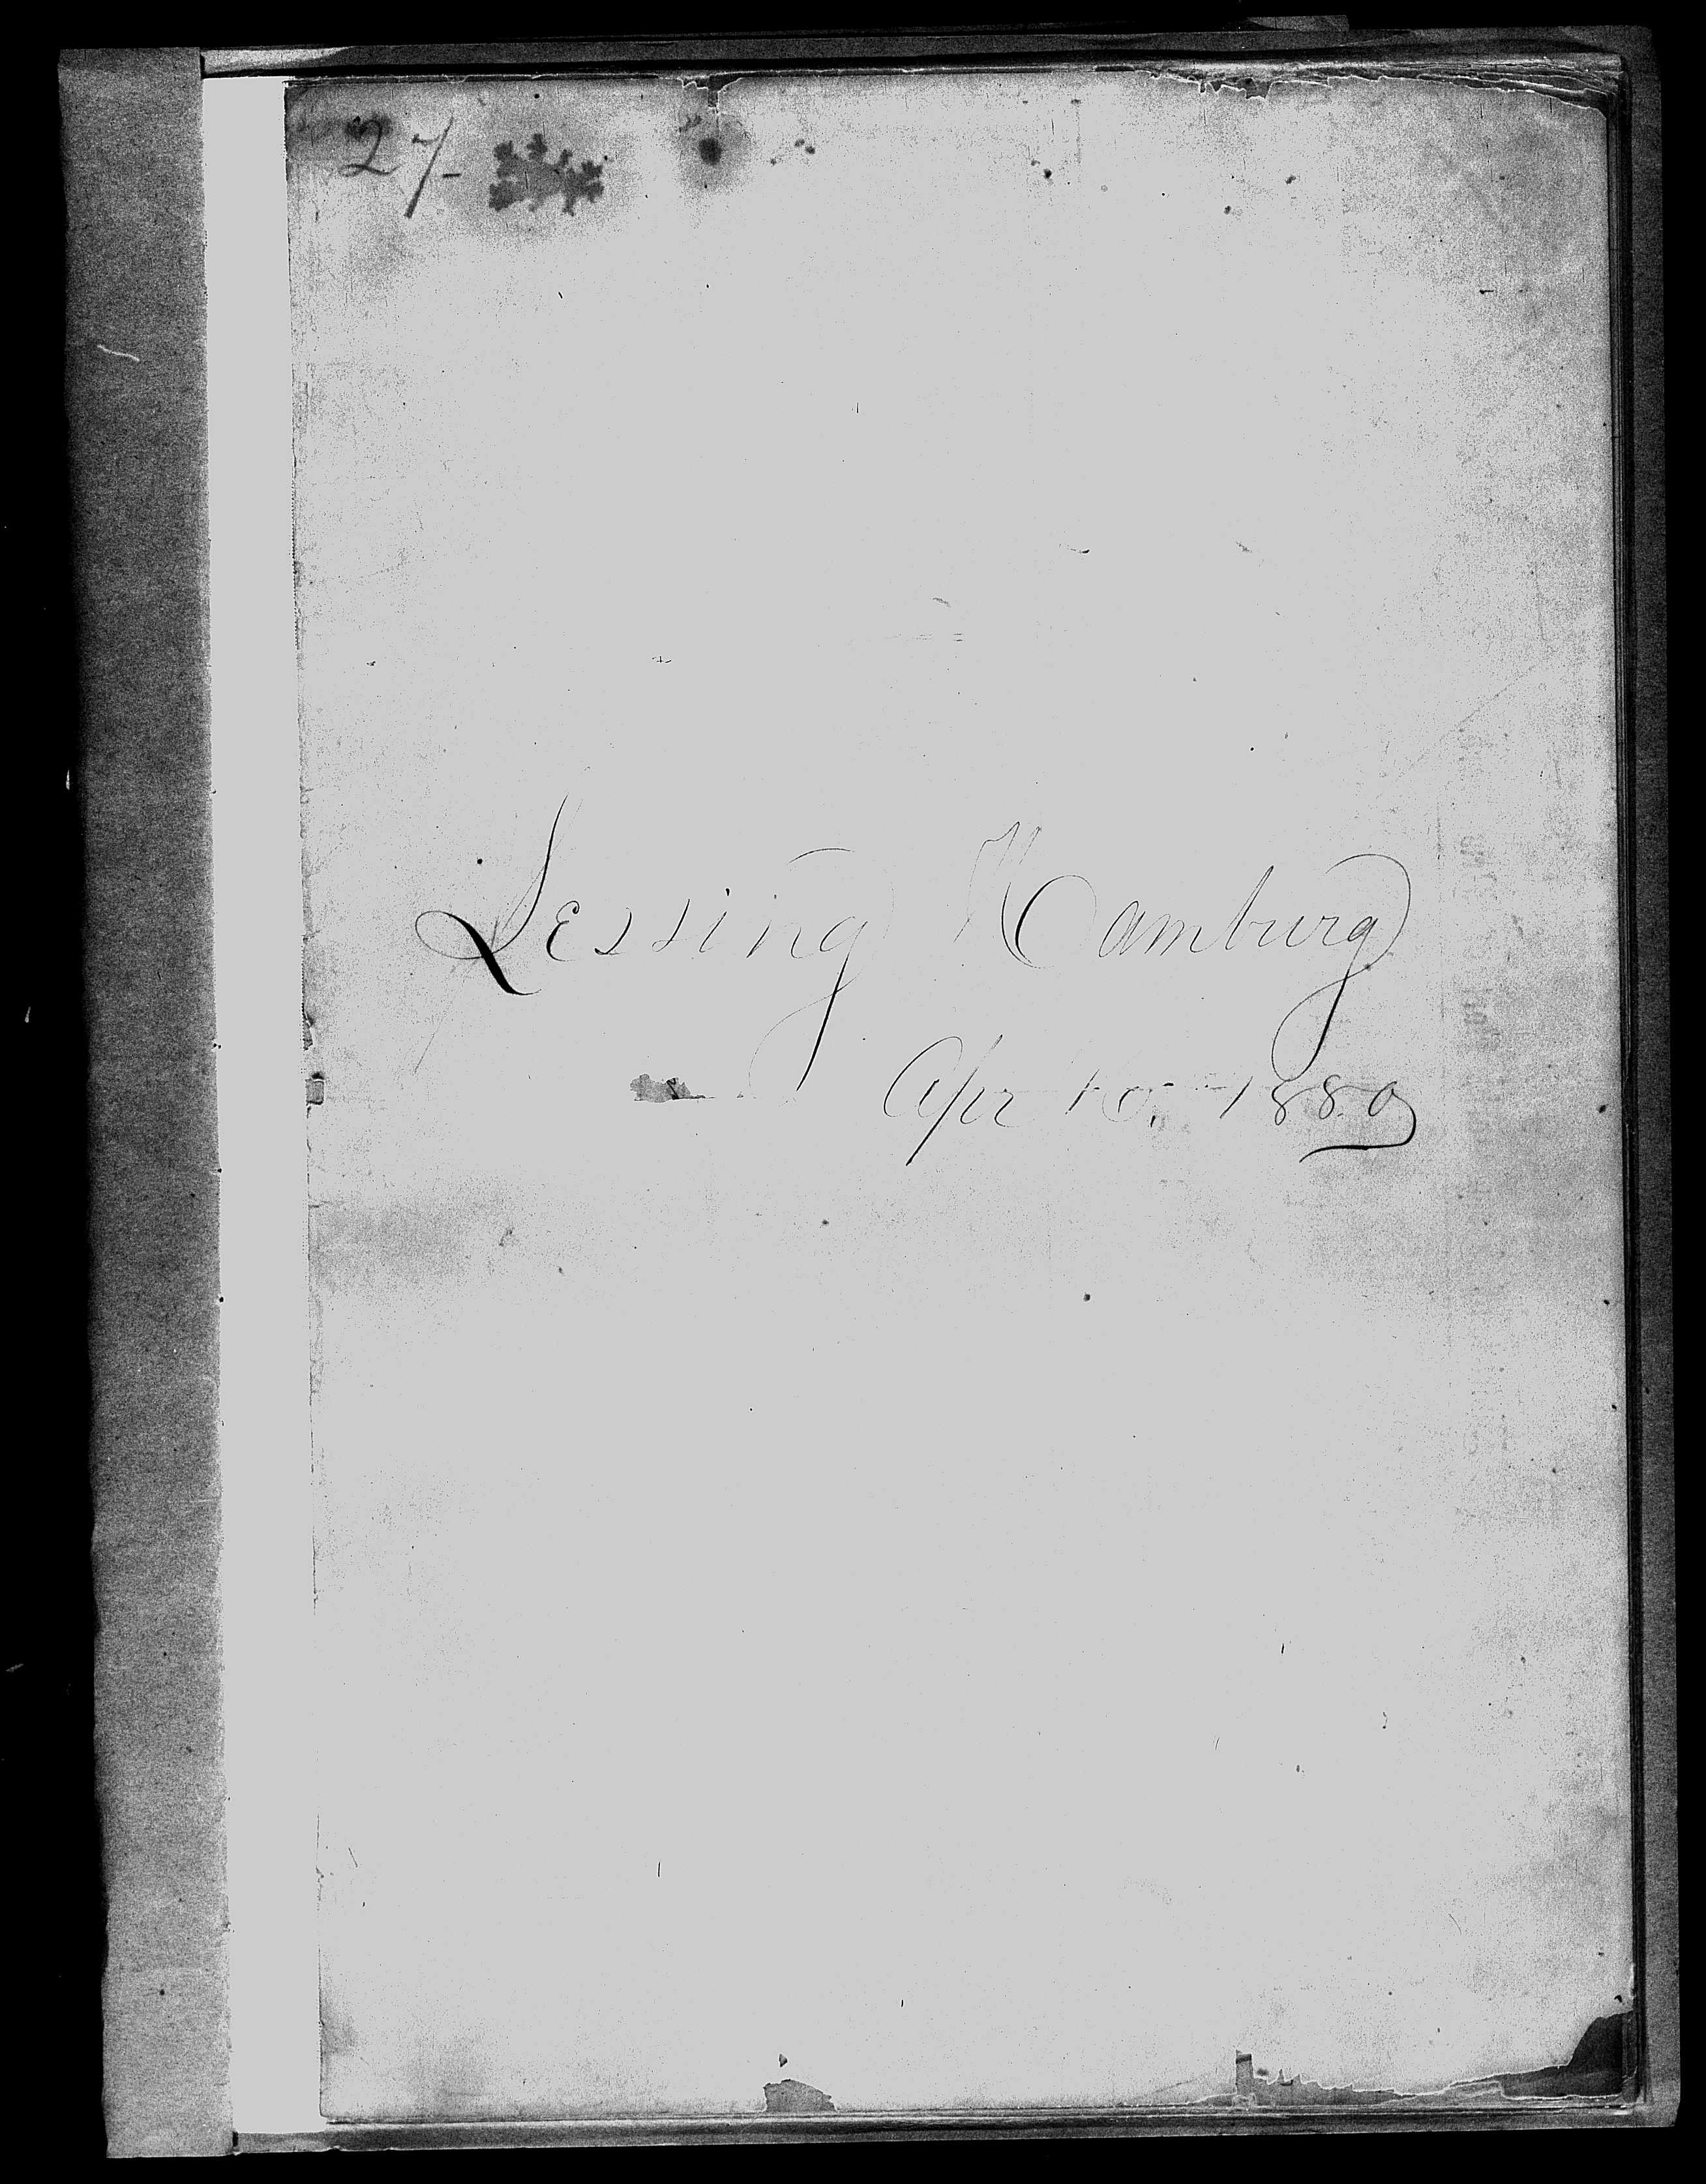 27-
Lessing Hamburg
Apr 10, 1880